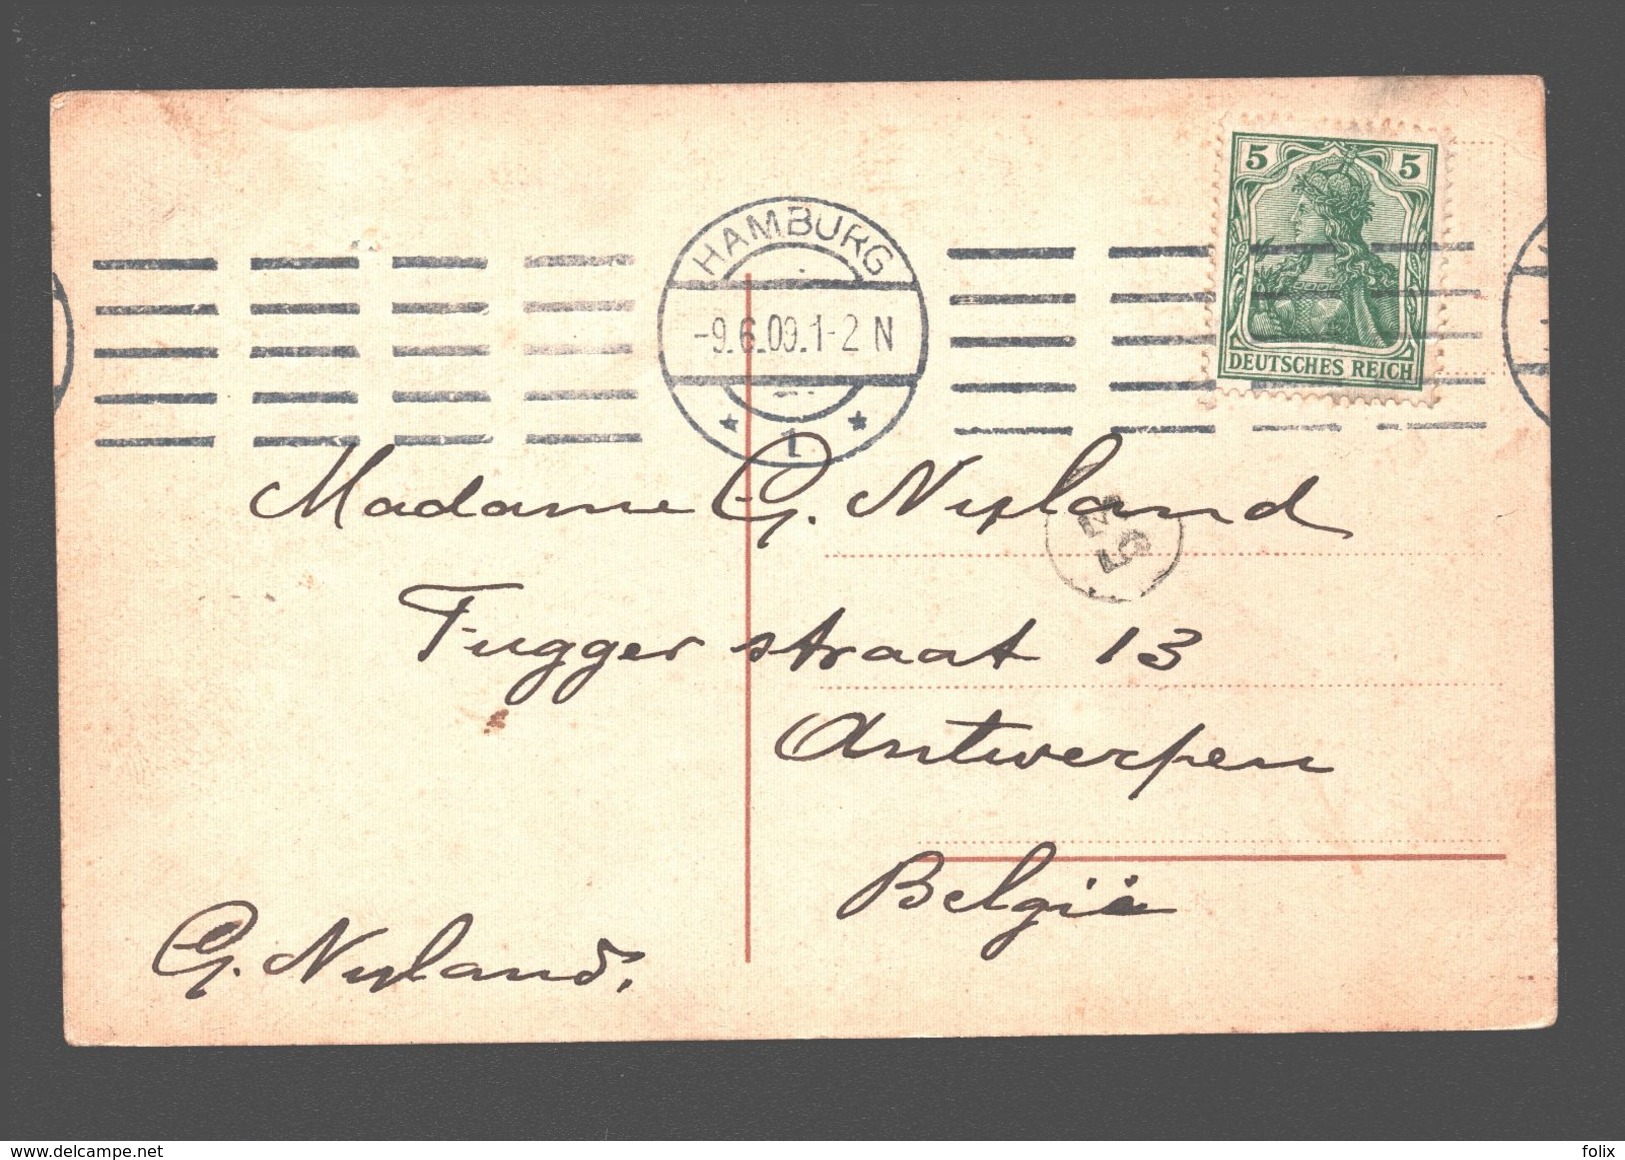 5 5
DEUTSCHES REICH
HAMBURG
-9.6.09.1-2 N
* 1 *
Madame G. Nyland
Fugger straat 13
Antwerpen
België
G. Nyland.
www.delcampe.net
folix